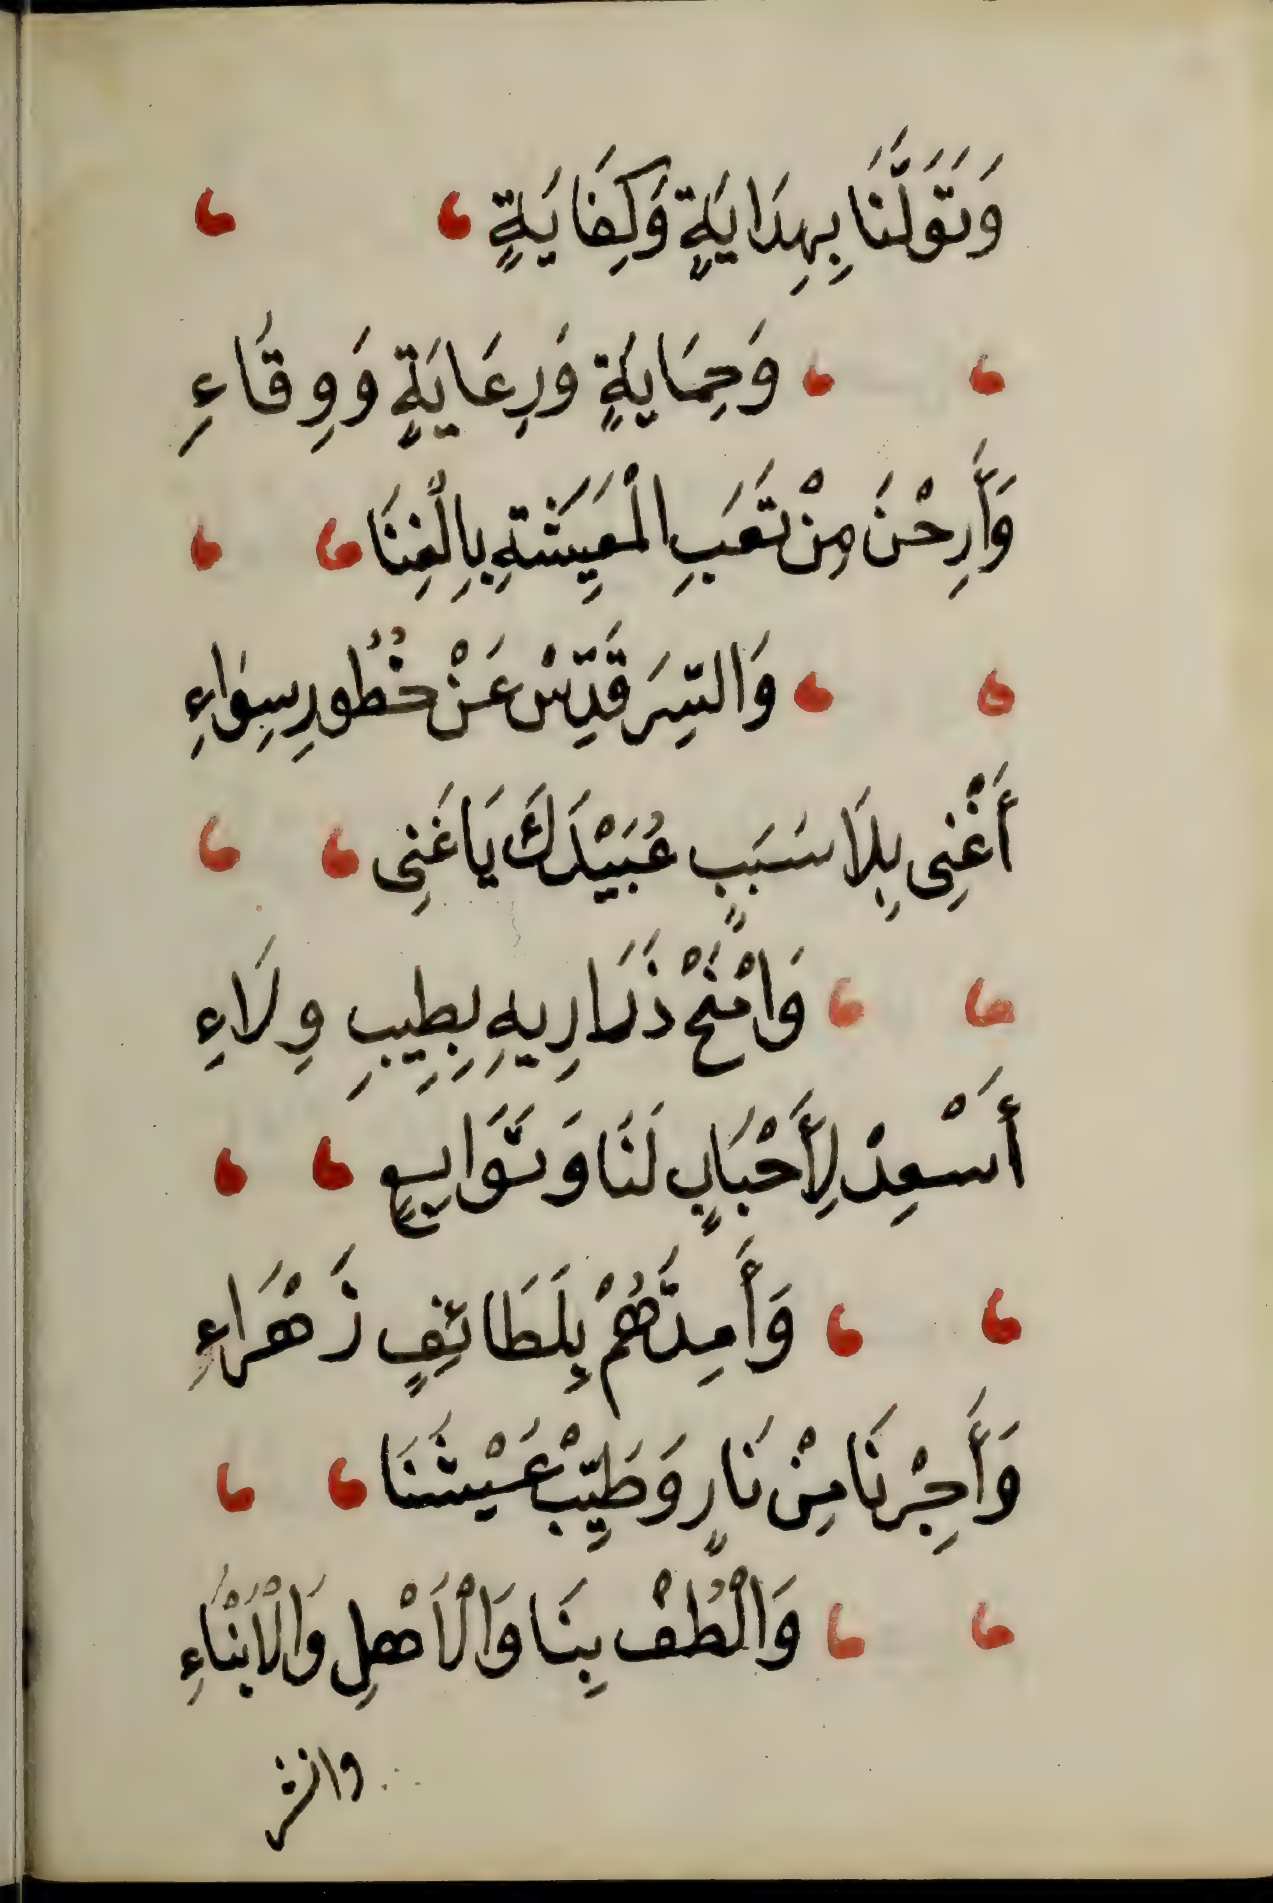 وَتَوَلَّنَا بِهِدَايَةٍ وَكِفَايَةٍ
وَحِمَايَةٍ وَرِعَايَةٍ وَوِقَاءِ
وَأَرِحْنَ مِنْ تَعَبِ الْمَعِيَشَةِ بِالْغِنَا
وَالسِّرَ قَدِّسْ عَنْ خُطُورِ سِوَاءِ
أَغْنِى بِلَا سَبَبٍ عُبَيْدَكَ يَا غَنِى
وَامْنَحْ ذَرَارِيهِ بِطِيبِ وِلَاءِ
أَسْعِدْ لِأَحْبَابٍ لَنَا وَتَوَابِعٍ
وَأَمِدَّهُمْ بِلَطَائِفٍ زَهْرَاءِ
وَأَجِرْنَا مِنْ نَارٍ وَطَيِّبْ عَيْشَنَا
وَالْطُفْ بِنَا وَالْاَهْلِ وَالْاَبْنَاءِ
وانشر